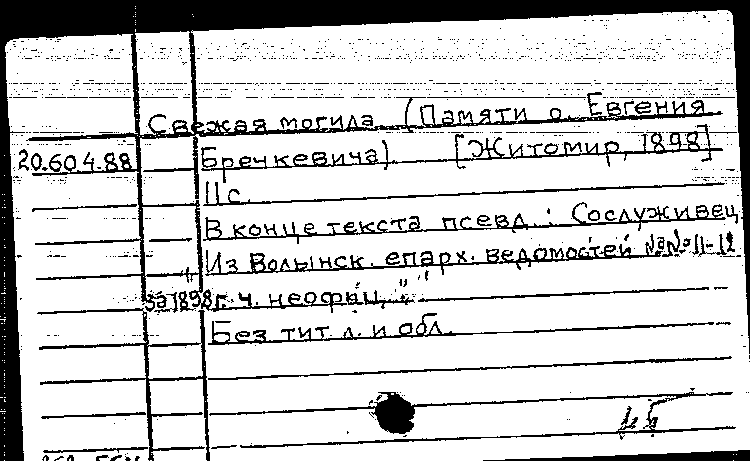 Свежая могила. (Памяти о. Евгения
20.60.4.88 Бречкевича). [Житомир, 1898]
11с.
В конце текста псевд.: Сослуживец
Из Волынск. епарх. ведомостей №№ 11-12
за 1898 г. ч. неофиц.
Без тит. л. и обл.